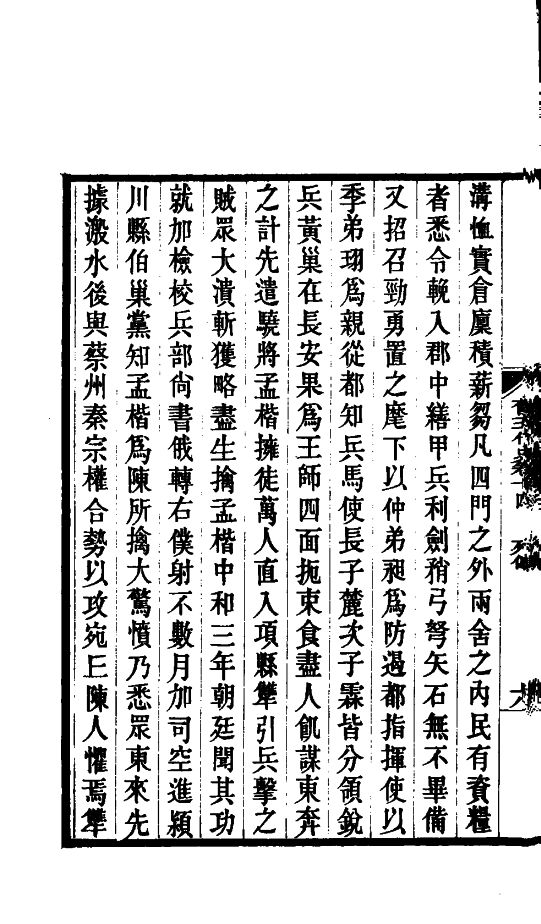 溝恤實倉廩積薪芻凡四門之外兩舍之內民有資糧
者悉令輓入郡中繕甲兵利劍矟弓弩矢石無不畢備
又招召勁勇置之麾下以仲弟昶爲防遏都指揮使以
季弟珝爲親從都知兵馬使長子麓次子霖皆分領銳
兵黃巢在長安果爲王師四面扼束食盡人飢謀東奔
之計先遣驍將孟楷擁徒萬人直入項縣犨引兵擊之
賊眾大潰斬獲略盡生擒孟楷中和三年朝廷聞其功
就加檢校兵部尙書俄轉右僕射不數月加司空進潁
川縣伯巢黨知孟楷爲陳所擒大驚憤乃悉眾東來先
據溵水後與蔡州秦宗權合勢以攻宛丘陳人懼焉犨